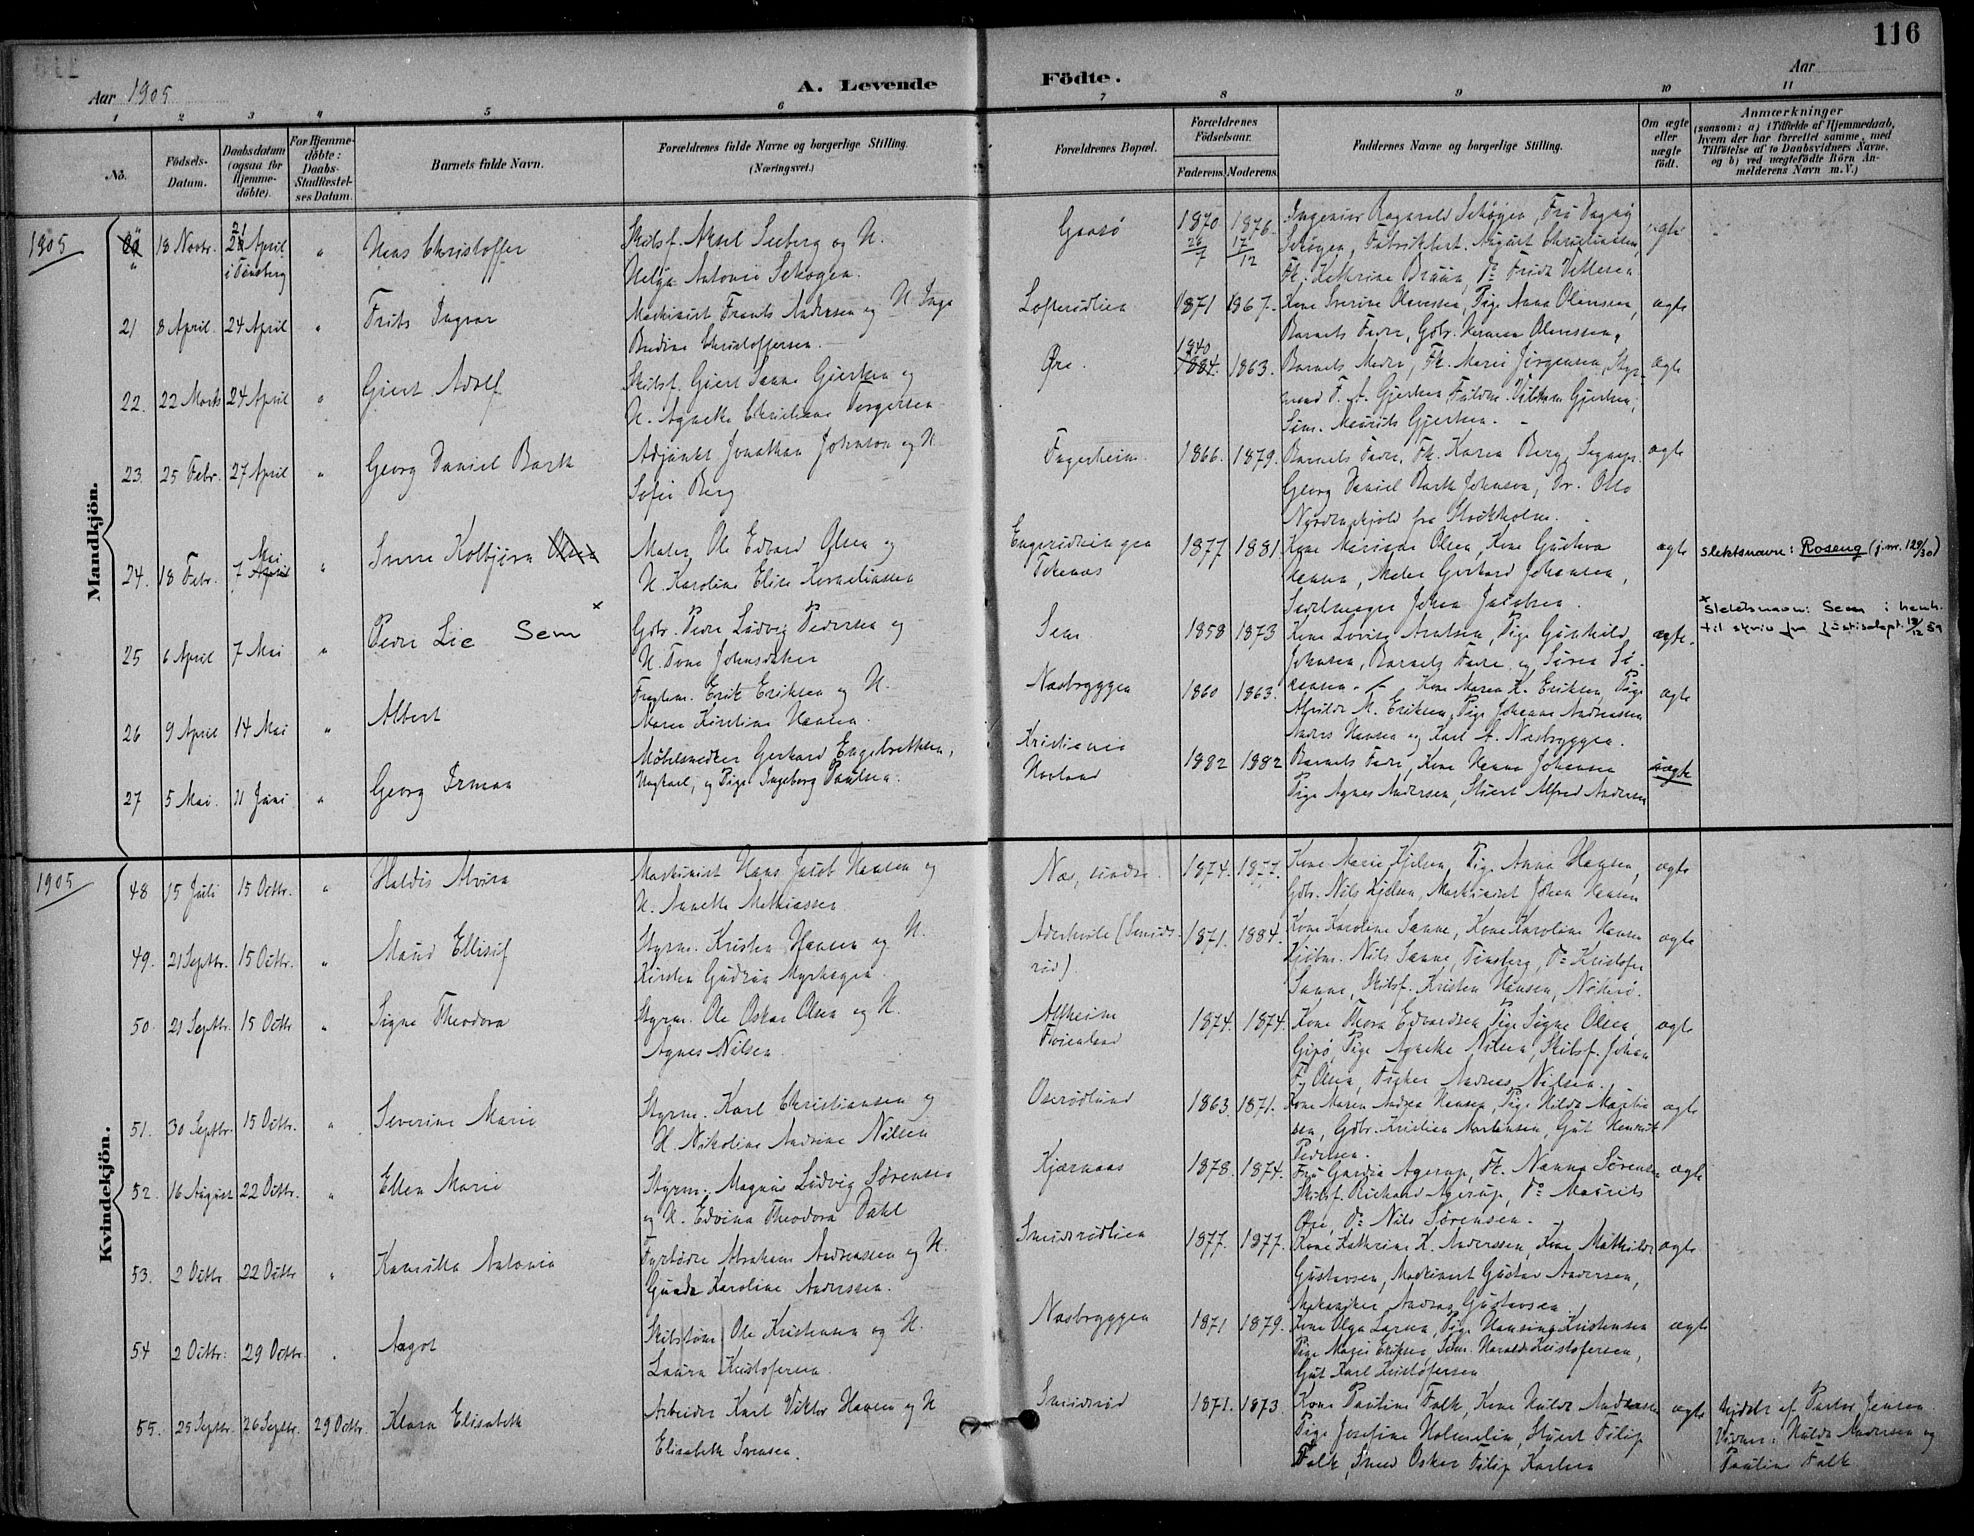 116
Aar 1905
A. Levende
Födte.
Aar
1 2 3 4 5 6 7 8 9 10 11
No.
Födsels-Datum.
Daabsdatum (ogsaa for Hjemme-döbte).
For Hjemme-döbte: Daabs-Stadfæstel-ses Datum.
Barnets fulde Navn.
Forældrenes fulde Navne og borgerlige Stilling. (Næringsvei.)
Forældrenes Bopæl.
Forældrenes Födselsaar.
Faderens. Moderens.
Faddernes Navne og borgerlige Stilling.
Om ægte eller uægte födt.
Anmærkninger
(saasom: a) i Tilfælde af Hjemmedaab, hvem der har forrettet samme, med Tilföielse af to Daabsvidners Navne, og b) ved uægtefödte Börn An-melderens Navn m.V.)
Mandkjön.
1905
18 Novbr. 21 April i Tönsberg " Christoffer
Skibsf. Aksel Seeberg og H.
Helga Antonie Sehögen.
Gaasö 1870 26/7 1876 17/12
ægte
21 8 April. 24 April " Frits Ingvar
Maskinist Frants Andersen og H. Inga
Christoffersen.
1871 1867.
Barnets Fader, Gdbr. Herman Olaussen.
ægte
22. 22 Marts 24 April " Giert Adolf
Skibsf. Giert Sanne Gjertsen og
H. Agnethe Christiane Torgersen
Øre. 1840 1863.
Barnets Moder, Fk. Marie Jörgensen, Styr-
mand F. A. Gjertsen, Vilhelm Gjertsen,
Söm. Mauritz Gjertsen.
ægte
23. 25 Febr. 27 April " Georg Daniel Barth
Adjunkt Jonathan Johnson og H.
Sofie Berg
Fagerheim. 1866. 1879.
Barnets Fader, Fk. Karen Berg,
Georg Daniel Barth Johnson, Dr. Otto
Nordenskjold fra Stockholm.
ægte
24. 18 Febr. 7 Mai " Sverre Kolbjörn
Maler Ole Edvard Olsen og
H. Karoline Elise Korneliussen
1877 1881
Kone Mariane Olsen, Kone Gustava
Hansen, Maler Gerhard Johansen,
Sadelmager Johan Jacobsen.
ægte
slektsnavn: Roseng (j.nr. 129/30)
25 6 April 7 Mai " Peder Lie Sem x
Gdbr. Peder Ludvig Pedersen og
H. Tone Johnsdatter
Sem 1858 1873
Kone Lovise Aralsen, Pige Gunhild
Johnsen, Barnets Fader og Sören Sö-
rensen.
ægte.
x Slektsnavn: Sem i henh.
til skriv fra Justisdept. 18/12 59
26 9 April 14 Mai " Albert
Erik Eriksen og H.
Maren Kirstine Hansen.
Næsbryggen 1860 1863.
Kone Maren K. Eriksen, Pige
Alvilde M. Eriksen, Pige Johanne Andreassen
Anders Hansen og Karl A. Næsbryggen.
ægte
27 5 Mai 11 Juni " Georg Irman
Möbelsnedker Gerhard Engebrethsen,
Ungkarl, og Pige Ingeborg Paulsen.
Kristiania
1882 1882
Barnets Fader, Kone Hanna Johansen
Pige Agnes Andersen, Stuert Alfred Andersen
uægte
Kvindekjön.
1905
48 15 Juli 15 Octbr. " Haldis Alvira
Maskinist Hans Jacob Hansen og
H. Annette Mathiassen
Næs, söndre. 1874. 1877.
Kone Marie Kjelsen, Pige Anna Hansen,
Gdbr. Nils Kjelsen, Maskinist Johan Hansen
ægte
49. 21 Septbr. 15 Octbr. " Maud Ellisif
Styrm. Kristen Hansen og H.
Kirsten Gudrun Myrhagen.
(Smids-
röd). 1871. 1884.
Kone Karoline Sanne, Kone Karoline Hansen
Kjöbm. Nils Sanne, Tönsberg, Do Kristofer
Sanne, Skibsf. Kristen Hansen, Nöterö.
ægte
50. 21 Septbr. 15 Octbr " Signe Theodora
Styrm. Ole Oskar Olsen og H.
Agnes Nilsen.
Alfheim
Föienland 1874. 1874.
Kone Thora Edvardsen, Pige Signe Olsen,
Gipö, Pige Agnethe Nilsen, Skibsf. Johan
F. Olsen, Fisker Andreas Nilsen.
ægte
51. 30 Septbr. 15 Octbr. " Severine Marie
Styrm. Karl Christiansen og
H. Nikoline Andrine Nilsen
Oserödlund 1863 1871.
Kone Maren Andrea Hansen, Pige Hilda Martin-
sen, Gdbr. Kristian Martinsen, Gut Henrik
Pedersen.
ægte
52. 16 August 22 Octbr. " Ellen Marie
Styrm. Magnus Ludvig Sörensen
og H. Edvina Theodora Dahl
Kjærnaas 1878. 1874.
Fru Gardia Agerup, Fk. Nanna Sörensen
Skibsf. Richard Agerup, Do Mauritz
Öre, Do Nils Sörensen.
ægte
53. 2 Octbr 22 Octbr " Kamilla Antonie
Fyrböder Abraham Andreassen og H.
Gunda Karoline Anderssen.
Smidsrödlien 1877. 1877.
Kone Kathrine K. Anderssen, Kone Mathilde
Gustavsen, Maskinist Gustav Andersen,
Mekaniker Andreas Gustavsen.
ægte
54 2 Octbr. 29 Octbr. . Aagot
Skibstöm Ole Kristensen og H.
Laura Kristofersen.
Næsbryggen 1871 1879.
Kone Olga Larsen, Pige Hansine Kristensen
Pige Marie Eriksen, Söm. Harald Kristofersen,
Gut Karl Kristofersen
ægte
55. 25 Septbr. 26 Septbr. 29 Octbr. Klara Elisabeth
Arbeider Karl Viktor Hansen og H
Elisabeth Svensen.
Smidsröd 1871. 1873.
Kone Pauline Falk, Kone Hulda Andersen
Pige Josefine Holmelin, Stuert Filip
Falk, Smed Oskar Filip Karlsen
ægte
Hjdöbt af Pastor Jensen.
Vidner: Hulda Andersen og
Pauline Falk